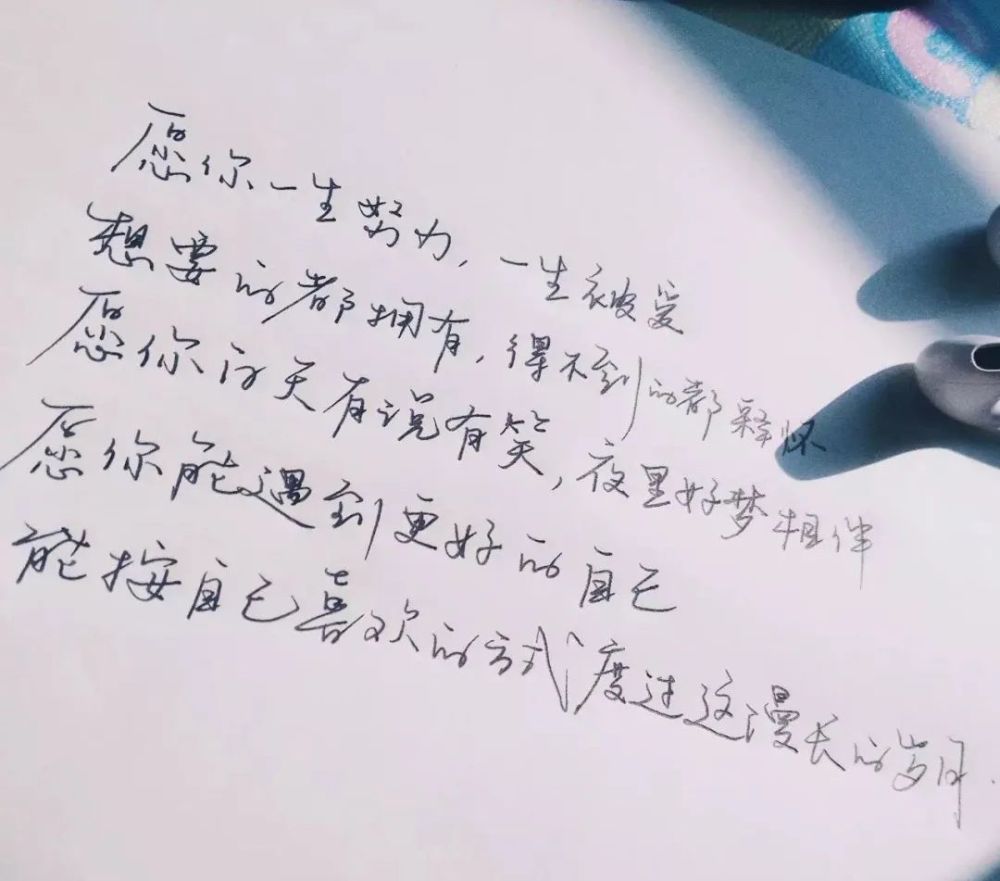 愿你一生努力,一生被爱
想要的都拥有,得不到的都释怀
愿你白天有说有笑,夜里好梦相伴
愿你能遇到更好的自己
能按自己喜欢的方式度过这漫长的岁月.